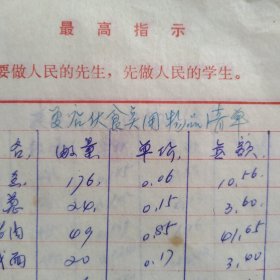 最高指示
要做人民的先生，先做人民的学生。
伙食实用物品清单
名 数量 单价 金额
鱼 176 0.06 10.56
24 0.15 3.60
肉 49 0.85 41.65
20 0.17 3.40